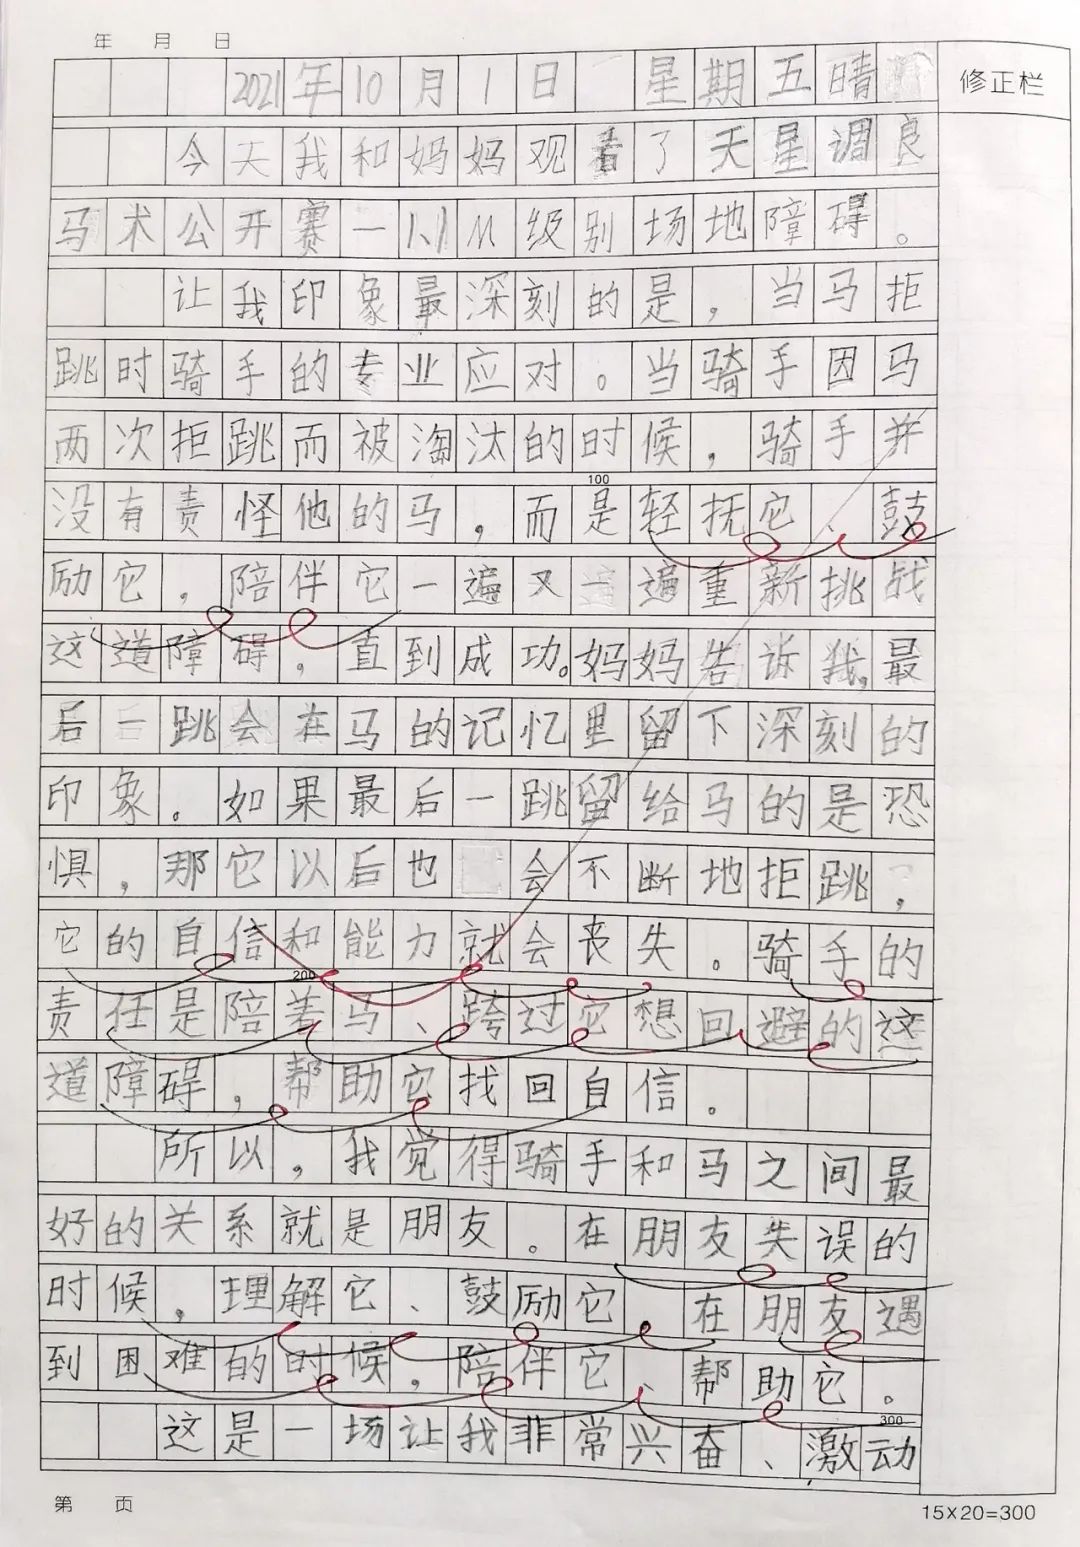 年 月 日
2021年10月1日 星期五晴
修正栏
今天我和妈妈观看了天星调良
马术公开赛一1.1M级别场地障碍。
让我印象最深刻的是，当马拒
跳时骑手的专业应对。当骑手因马
两次拒跳而被淘汰的时候，骑手并
100
没有责怪他的马，而是轻抚它、鼓
励它，陪伴它一遍又一遍重新挑战
这道障碍，直到成功。妈妈告诉我，最
后一跳会在马的记忆里留下深刻的
印象。如果最后一跳留给马的是恐
惧，那它以后也会不断地拒跳，
它的自信和能力就会丧失。骑手的
200
责任是陪着马、跨过它想回避的这
道障碍，帮助它找回自信。
所以，我觉得骑手和马之间最
好的关系就是朋友。在朋友失误的
时候，理解它、鼓励它、在朋友遇
到困难的时候，陪伴它、帮助它。
300
这是一场让我非常兴奋、激动
第 页
15×20=300